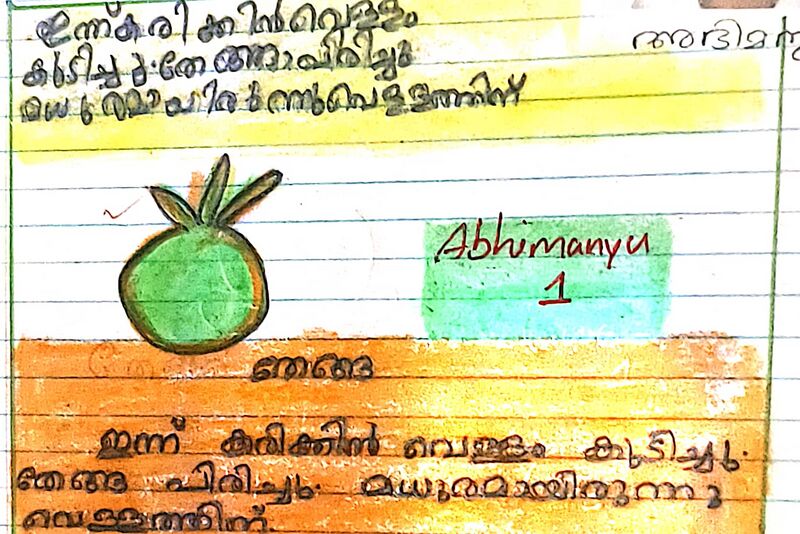 ഇന്ന് കരിക്കിൻ വെള്ളം
കുടിച്ചു. തേങ്ങാ പിരിച്ചു
മധുരമായിരുന്നു വെള്ളത്തിന്
അഭിമന്യു
Abhimanyu
1
തേങ്ങ
ഇന്ന് കരിക്കിൻ വെള്ളം കുടിച്ചു.
തേങ്ങ പിരിച്ചു. മധുരമായിരുന്നു
വെള്ളത്തിന്.